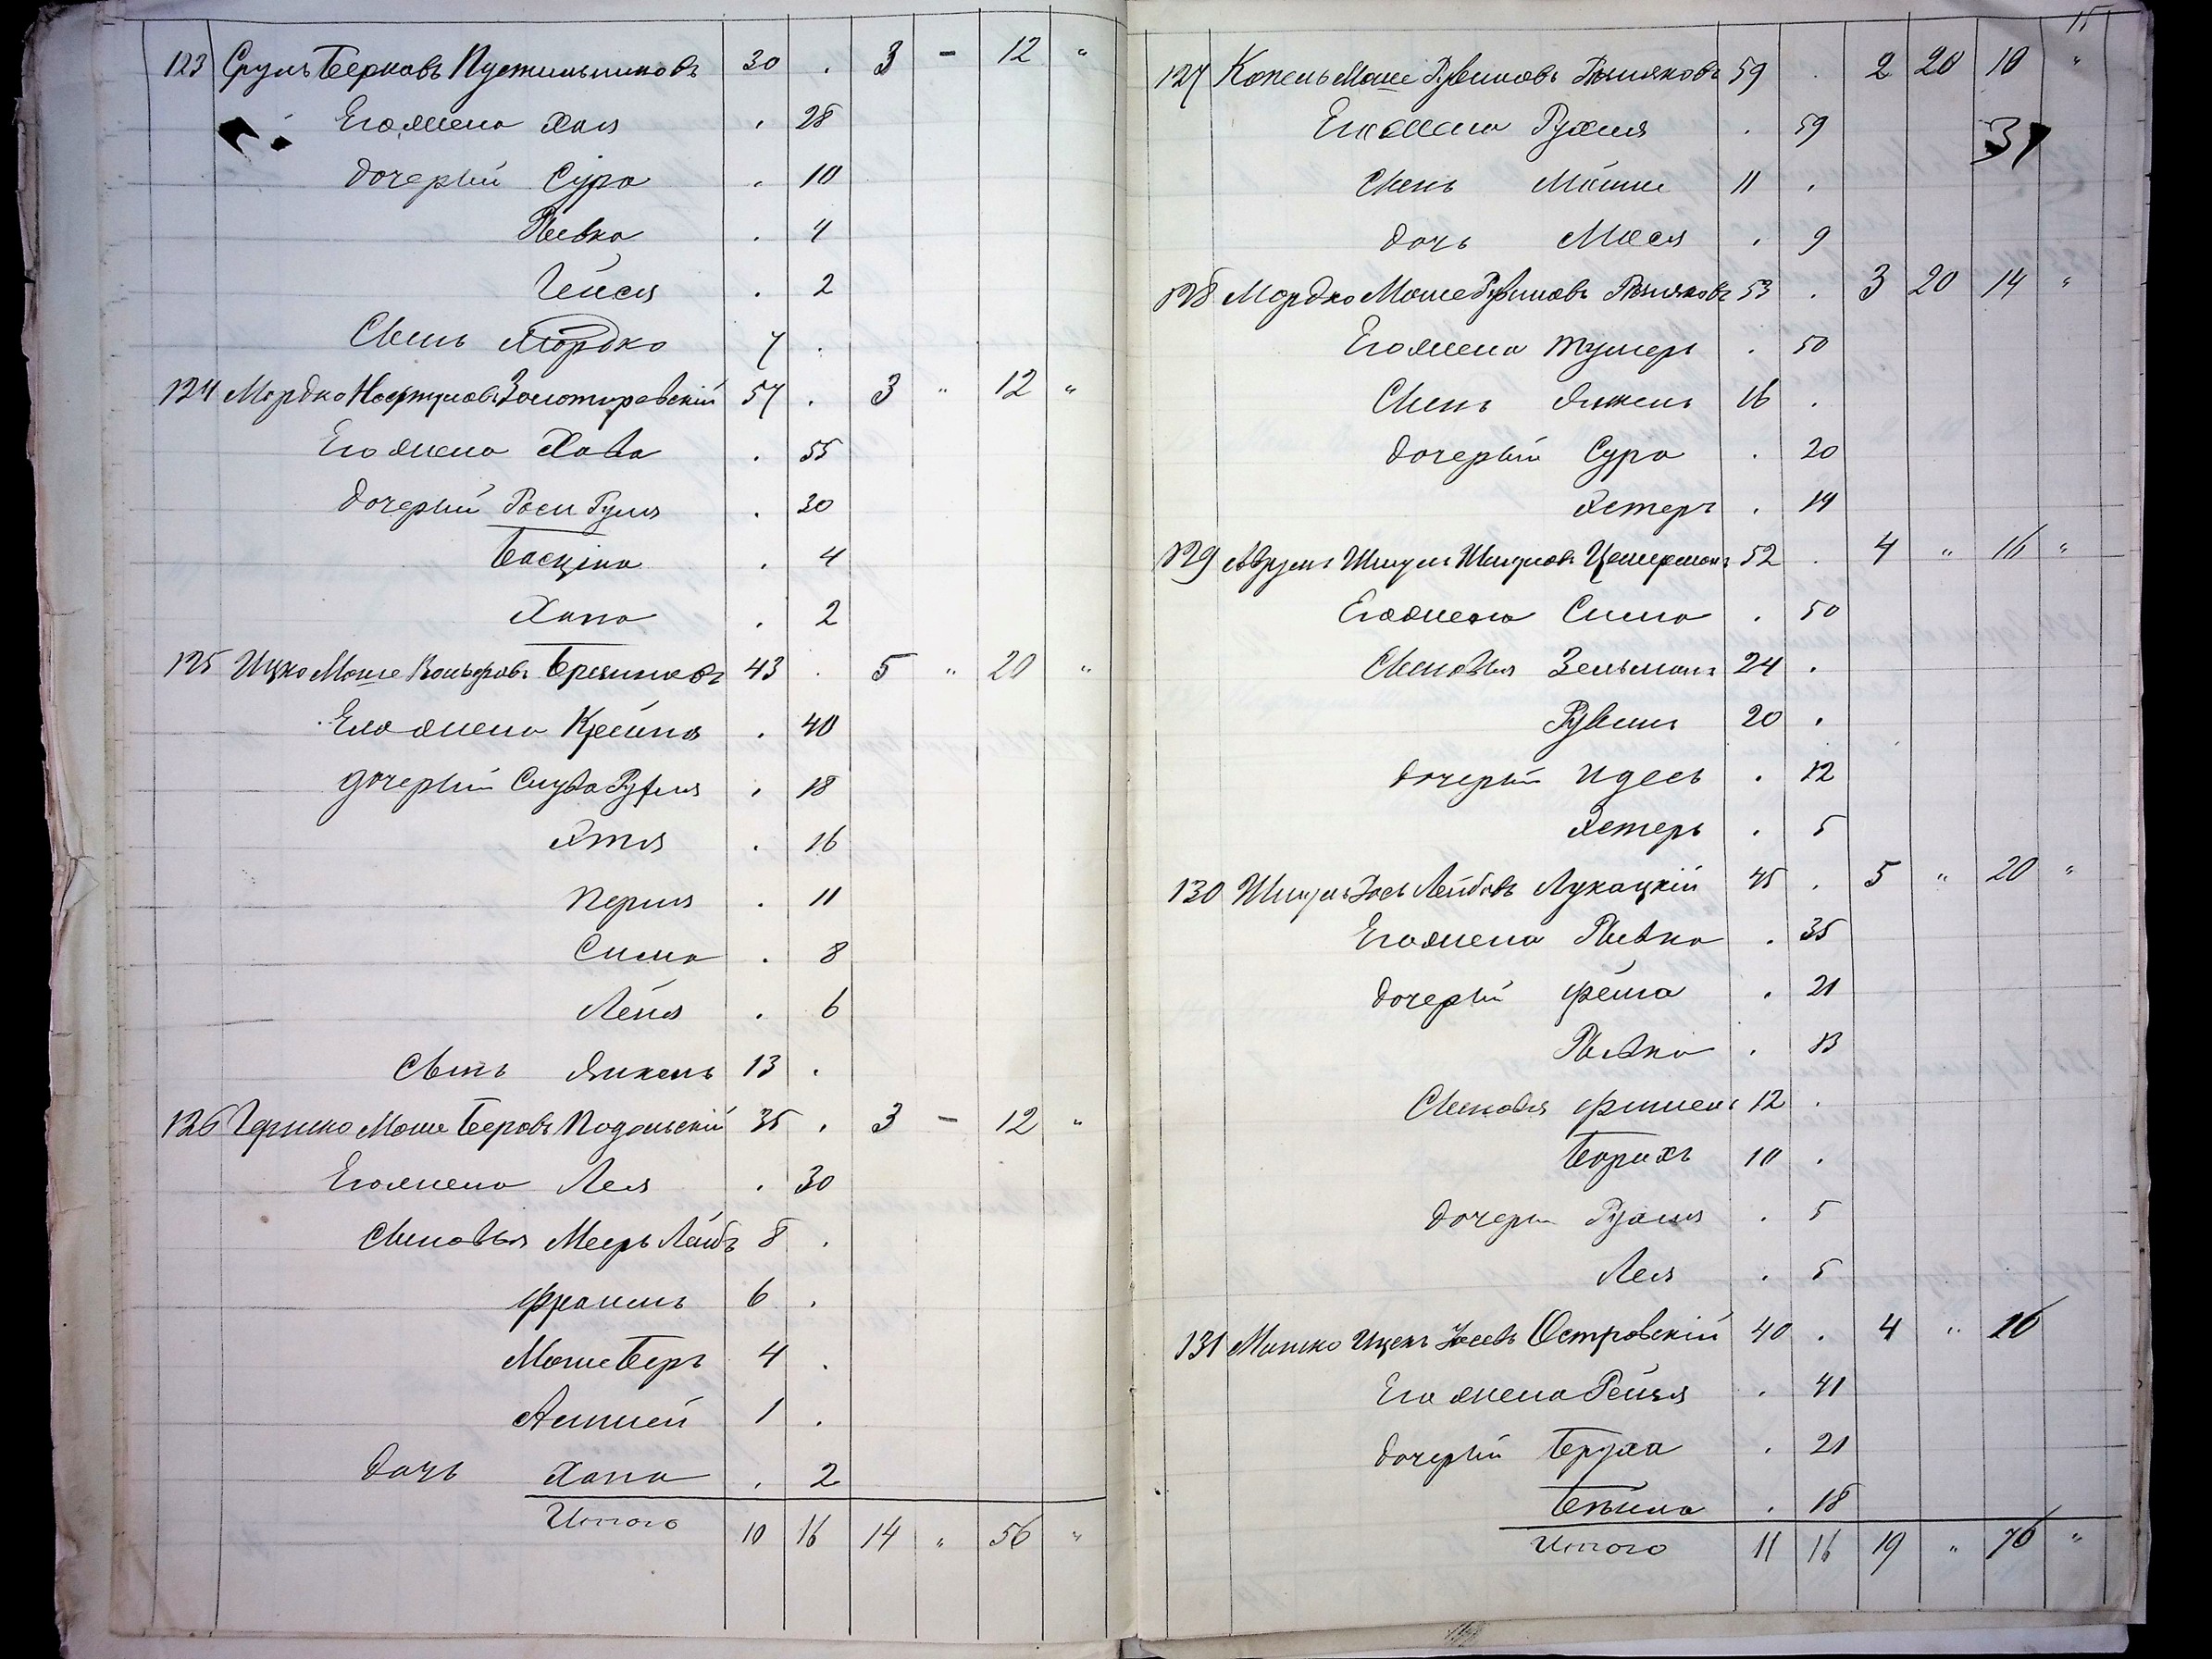 123 Сруль Берковъ Пустильниковъ 30 . 3 - 12 "
Его жена Хая . 28
дочерый Сура . 10
Ривка . 4
Гейся . 2
Сынъ Мордко 7 .
124 Мордко Нафтуловъ Золотаревскій 57 . 3 " 12 "
Его жена Хава . 55
дочерый Рося Руля . 20
Басціна . 4
Хана . 2
125 Ицко Моше Вольфовъ 43 . 5 " 20 "
Его жена Крейня . 40
дочерый Слува Рухля . 18
Этля . 16
Перля . 11
Сима . 8
Лейя . 6
Сынъ Янкель 13 .
126 Гершко Моше Беровъ Подольскій 35 . 3 - 12 "
Его жена Лея . 30
Сыновья Мееръ Лейбъ 8 .
Фроимъ 6 .
Моше Беръ 4 .
1 .
дочь Хана . 2
Итого 10 16 14 " 56 "
15
127 Копель Моше Рувиновъ 59 . 2 20 10 "
Его жена Рухля . 59
31
Сынъ Мошко 11 .
дочь Мася . 9
128 Мордко Моше Рувиновъ 53 . 3 20 14 "
Его жена . 50
Сынъ Янкель 16 .
дочерый Сура . 20
Эстеръ . 14
129 Аврумъ Шмуль Шмуловъ Цимерманъ 52 . 4 " 16 "
Его жена Сима . 50
Сыновья Зельманъ 24 .
Рувинъ 20 .
дочерый Идесь . 12
Эстеръ . 5
130 Шмуль Іось Лейбовъ Лукацкій 45 . 5 " 20 "
Его жена Ривка . 35
дочерый Фейга . 21
Ривка . 13
Сыновья Фишель 12 .
Борихъ 10 .
дочери Рухля . 5
Лея . 5
131 Мошко Ицекъ Іосевъ Островскій 40 . 4 " 16
Его жена Рейзя . 41
дочерый Бруха . 21
Бейла . 18
Итого 11 16 19 " 76 "